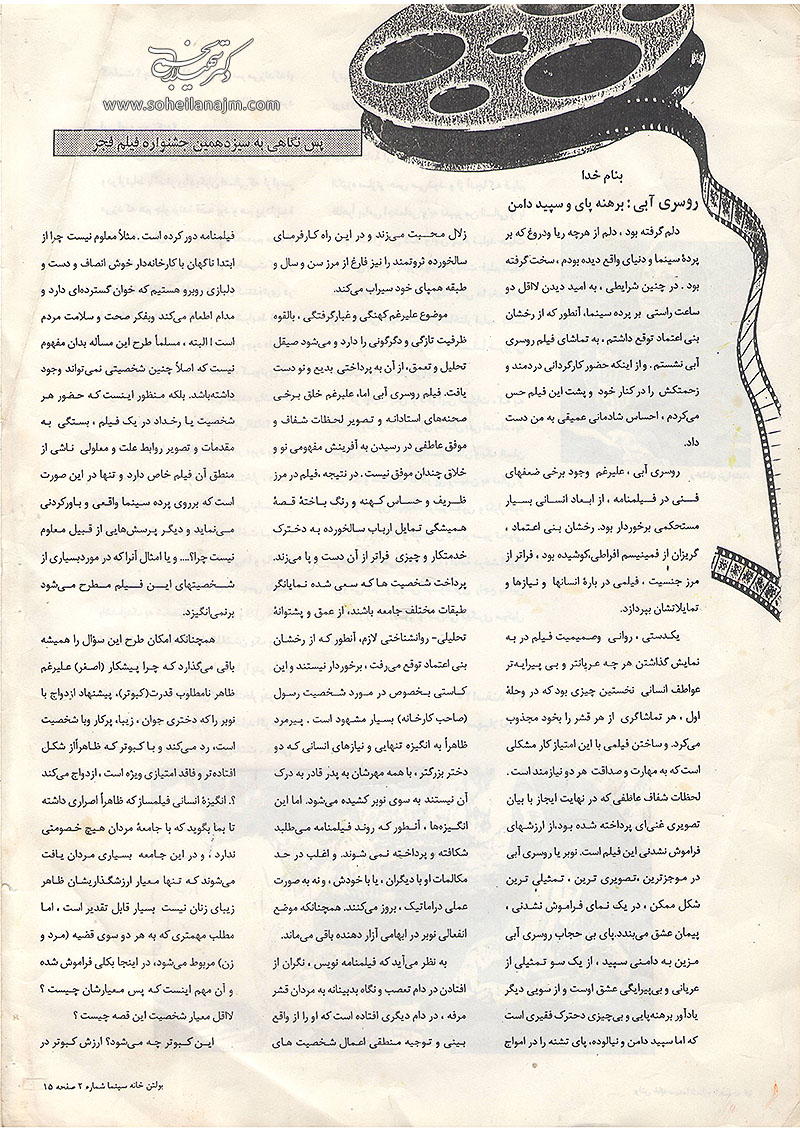 دکتر سهیلا نجم
www.soheilanajm.com
پس نگاهی به سیزدهمین جشنواره فیلم فجر
بنام خدا
روسری آبی : برهنه پای و سپید دامن
دلم گرفته بود ، دلم از هرچه ریا ودروغ که بر
پردهٔ سینما و دنیای واقع دیده بودم ، سخت گرفته
بود . در چنین شرایطی ، به امید دیدن لااقل دو
ساعت راستی بر پرده سینما، آنطور که از رخشان
بنی اعتماد توقع داشتم ، به تماشای فیلم روسری
آبی نشستم . و از اینکه حضور کارگردانی دردمند و
زحمتکش را در کنار خود و پشت این فیلم حس
می‌کردم ، احساس شادمانی عمیقی به من دست
داد.
روسری آبی ، علیرغم وجود برخی ضعفهای
فـنـی در فـیـلمنامه ، از ابعـاد انسـانـی بسیـار
مستحکمی برخوردار بود. رخشان بنی اعتماد ،
گریزان از فمینیسم افراطی،کوشیده بود ، فراتر از
مرز جنسیت ، فیلمی در بارهٔ انسانها و نیازها و
تمایلاتشان بپردازد.
یکـدستی ، روانـی وصمیمیت فیلم در به
نمایش گذاشتن هر چه عـریانتر و بـی پیرایـه‌تر
عواطف انسانی نخستین چیزی بود که در وحلهٔ
اول ، هر تماشاگری از هر قشر را بخود مجذوب
می‌کرد. و ساختن فیلمی با این امتیاز کار مشکلی
است که به مهارت و صداقت هر دو نیازمند است .
لحظات شفاف عاطفی که در نهایت ایجاز با بیان
تصویری غنی‌ای پرداخته شده بود،از ارزشهای
فراموش نشدنی این فیلم است. نوبر یا روسری آبی
در موجزترین ،تصویری ترین ، تـمثیلی ترین
شکل ممکن ، در یک نمای فرامـوش نشدنی ،
پیمان عشق می‌بندد.پای بی حجاب روسری آبی
مـزین به دامـنی سـپید ، از یک سو تـمثیلی از
عریانی و بی‌پیرایگی عشق اوست و از سویی دیگر
یادآور برهنه‌پایی و بی‌چیزی دخترک فقیری است
که اما سپید دامن و نیالوده، پای تشنه را در امواج
زلال محـبت می‌زند و در این راه کـارفرمـای
سالخورده ثروتمند را نیز فارغ از مرز سن و سال و
طبقه همپای خود سیراب می‌کند.
موضوع علیرغم کهنگی و غبارگرفتگی ، بالقوه
ظرفیت تازگی و دگرگونی را دارد و می‌شود صیقل
تحلیل و تعمق، از آن به پرداختی بدیع و نو دست
یافت. فیلم روسری آبی اما، علیرغم خلق برخـی
صحنه‌های استادانـه و تصویر لحظات شـفاف و
موفق عاطفی در رسیدن به آفرینش مفهومی نو و
خلاق چندان موفق نیست. در نتیجه ،فیلم در مرز
ظـریـف و حسـاس کـهنه و رنگ بـاختهٔ قـصهٔ
همیشگی تمایل ارباب سالخورده بـه دخـترک
خدمتکار و چیزی فراتر از آن دست و پا می‌زند.
پرداخت شخصیت هـا کـه سعی شده نـمایانگر
طبقات مختلف جامعه باشند، از عمق و پشتوانهٔ
تحلیلی- روانشناختی لازم، آنطور کـه از رخشـان
بنی اعتماد توقع می‌رفت ، برخوردار نیستند و این
کـاستی بـخصوص در مـورد شـخصیت رسـول
(صاحب کارخانه) بسیار مشهود است . پـیرمرد
ظاهراً به انگیزه تنهایی و نیازهای انسانی کـه دو
دختر بزرگتر ، با همه مهرشان به پدر قادر به درک
آن نیستند به سوی نوبر کشیده می‌شود. اما این
انگـیزه‌ها ، آنطـور که رونـد فـیلمنامه می‌طلبد
شکافته و پرداخته نـمی شوند. و اغلب در حـد
مکالمات او با دیگران ، یا با خودش ، و نه به صورت
عملی دراماتیک ، بروز می‌کنند. همچنانکه موضع
انفعالی نوبر در ابهامی آزار دهنده باقی می‌ماند.
به نظر می‌آید که فیلمنامه نویس ، نگران از
افتادن در دام تعصب و نگاه بدبینانه به مردان قشر
مرفه ، در دام دیگری افتاده است که او را از واقع
بـینی و توجیه مـنطقی اعمال شـخصیت هـای
فیلمنامه دور کرده است . مثلاً معلوم نیست چرا از
ابتدا ناگهان با کارخانه‌دار خوش انصاف و دست و
دلبازی روبرو هستیم که خوان گسترده‌ای دارد و
مدام اطعام می‌کند وبفکر صحت و سلامت مردم
است ! البته ، مسلماً طرح این مسأله بدان مفهوم
نیست که اصلاً چنین شخصیتی نمی‌تواند وجود
داشته‌باشد. بلکه منظور اینست کـه حـضور هـر
شخصیت یـا رخـداد در یک فـیلم ، بستگـی به
مقدمات و تصویر روابط علت و معلولی ناشی از
منطق آن فیلم خاص دارد و تنها در این صورت
است که برروی پرده سینما واقعی و باورکردنی
مـی‌نماید و دیگـر پـرسش‌هایی از قـبیل مـعلوم
نیست چرا؟... و یا امثال آنرا که در موردبسیاری از
شـخصیتهای ایـن فـیـلم مـطرح مـی‌شود
برنمی‌انگیزد.
همچنانکه امکان طرح این سؤال را همیشه
باقی می‌گذارد کـه چـرا پـیشکار (اصـغر) عـلیرغم
ظاهر نامطلوب قدرت(کبوتر)، پیشنهاد ازدواج با
نوبر را که دختری جوان ، زیبا، پرکار وبا شخصیت
است، رد می‌کند و بـا کبوتر کـه ظاهراًاز شکل
افتاده‌تر و فاقد امتیازی ویژه است ، ازدواج می‌کند
؟. انگیزهٔ انسانی فیلمساز که ظاهراً اصراری داشته
تا بما بگوید که با جامعهٔ مردان هیچ خصومتی
ندارد ، و در این جامعه بسیاری مـردان یـافت
می‌شوند کـه تـنهـا معیار ارزشگذاریشان ظاهر
زیبای زنان نیست بسیار قابل تقدیر است ، امـا
مطلب مهمتری که به هر دو سوی قضیه (مـرد و
زن) مربوط می‌شود، در اینجا بکلی فراموش شده
و آن مهم اینست کـه پس معیارشان چـیست ؟
لااقل معیار شخصیت این قصه چیست ؟
ایـن کـبوتر چه می‌شود؟ ارزش کبوتر در
بولتن خانه سینما شماره ۲ صفحه ۱۵